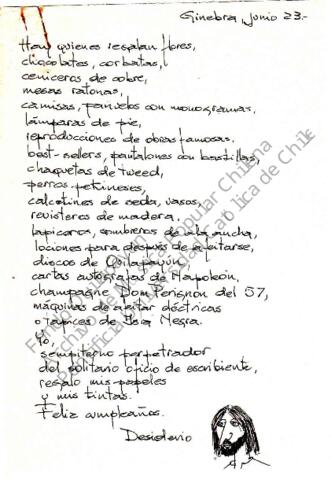 Ginebra, junio 23.-
Hay quienes regalan flores,
chocolates, corbatas,
ceniceros de cobre,
mesas ratonas,
camisas, pañuelos con monogramas,
lámparas de pie,
reproducciones de obras famosas,
best-sellers, pantalones con bastillas,
chaquetas de tweed,
perros pekineses,
calcetines de seda, vasos,
revisteros de madera,
lapiceros, sombreros de ala ancha,
lociones para después de afeitarse,
discos de Quilapayún,
cartas autógrafas de Napoleón,
champagne Dom Perignon del 57,
máquinas de afeitar eléctricas
o tapices de Isla Negra.
Yo,
sempiterno perpetrador
del solitario oficio de escribiente,
regalo mis papeles
y mis tintas.
Feliz cumpleaños.
Desiderio
Archivo de Música Popular Chilena
Pontificia Universidad Católica de Chile